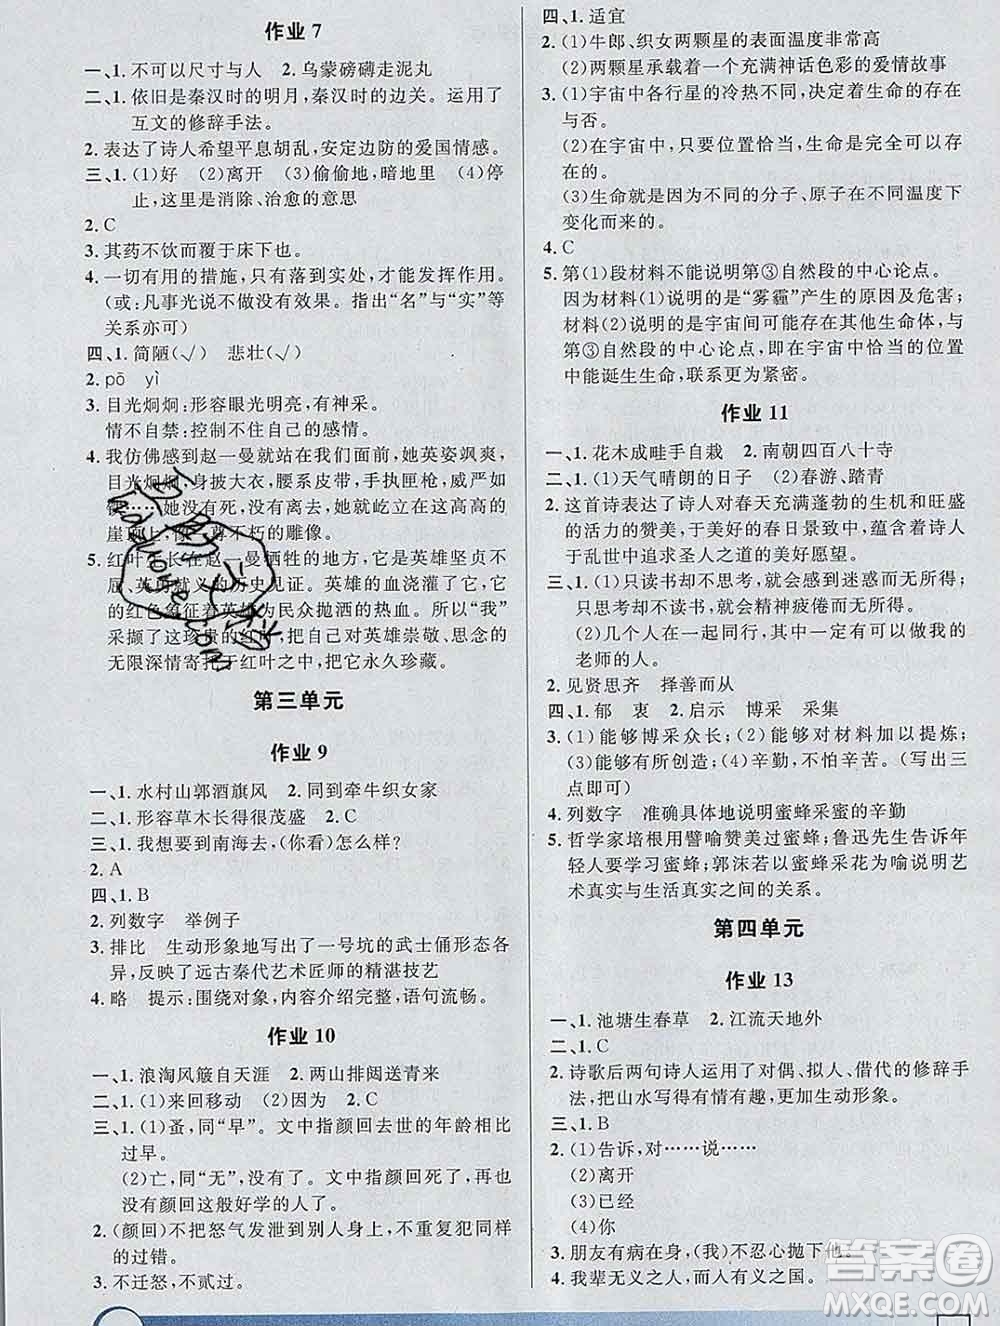 作业 7
一、1. 不可以尺寸与人　2. 乌蒙磅礴走泥丸
二、1. 依旧是秦汉时的明月,秦汉时的边关。运用了
互文的修辞手法。
2. 表达了诗人希望平息胡乱,安定边防的爱国情感。
三、1. (1)好　(2)离开　(3)偷偷地,暗地里　(4)停
止,这里是消除、治愈的意思
2. C
3. 其药不饮而覆于床下也。
4. 一切有用的措施,只有落到实处,才能发挥作用。
(或:凡事光说不做没有效果。指出“名”与“实”等
关系亦可)
四、1. 简陋(√)　悲壮(√)
2. pō　yì
3. 目光炯炯:形容眼光明亮,有神采。
情不自禁:控制不住自己的感情。
4. 我仿佛感到赵一曼就站在我们面前,她英姿飒爽,
目光炯炯,身披大衣,腰系皮带,手执匣枪,威严如
……她没有死,没有离去,她就屹立在这高高的
崖顶上,像一尊不朽的雕像。
5. 红叶生长在赵一曼牺牲的地方,它是英雄坚贞不
屈、英勇就义的历史见证。英雄的血浇灌了它,它
的红色象征着英雄为民众抛洒的热血。所以“我”
采撷了这珍贵的红叶,把自己对英雄崇敬、思念的
无限深情寄托于红叶之中,把它永久珍藏。
第三单元
作业 9
一、1. 水村山郭酒旗风　2. 同到牵牛织女家
二、1. 形容草木长得很茂盛　2. C
三、1. 我想要到南海去,(你看)怎么样?
2. A
四、1. B
2. 列数字　举例子
3. 排比　生动形象地写出了一号坑的武士俑形态各
异,反映了远古秦代艺术匠师的精湛技艺
4. 略　提示:围绕对象,内容介绍完整,语句流畅。
作业 10
一、1. 浪淘风簸自天涯　2. 两山排闼送青来
二、1. (1)来回移动　(2)因为　2. C
三、1. (1)蚤,同“早”。文中指颜回去世的年龄相比于
过早。
(2)亡,同“无”,没有了。文中指颜回死了,再也
没有颜回这般好学的人了。
2. (颜回)不把怒气发泄到别人身上,不重复犯同样
的过错。
3. 不迁怒,不贰过。
四、1. 适宜
2. (1)牛郎、织女两颗星的表面温度非常高
(2)两颗星承载着一个充满神话色彩的爱情故事
3. (1)宇宙中各行星的冷热不同,决定着生命的存在
与否。
(2)在宇宙中,只要位置恰当,生命是完全可以存
在的。
(3)生命就是因为不同的分子、原子在不同温度下
变化而来的。
4. C
5. 第(1)段材料不能说明第③自然段的中心论点。
因为材料(1)说明的是“雾霾”产生的原因及危害;
材料(2)说明的是宇宙间可能存在其他生命体,与
第③自然段的中心论点,即在宇宙中恰当的位置
中能诞生生命,联系更为紧密。
作业 11
一、1. 花木成畦手自栽　2. 南朝四百八十寺
二、1. (1)天气晴朗的日子　(2)春游、踏青
2. 这首诗表达了诗人对春天充满蓬勃的生机和旺盛
的活力的赞美,于美好的春日景致中,蕴含着诗人
于乱世中追求圣人之道的美好愿望。
三、1. (1)只读书却不思考,就会感到迷惑而无所得;
只思考却不读书,就会精神疲倦而无所得。
(2)几个人在一起同行,其中一定有可以做我的
老师的人。
2. 见贤思齐　择善而从
四、1. 郁　衷　2. 启示　博采　采集
3. (1)能够博采众长;(2)能够对材料进行提炼;(3)
能够有所创造;(4)辛勤、不怕辛苦。(写出三
点即可)
4. 列数字　准确具体地说明蜜蜂采蜜的辛勤
5. 哲学家培根用譬喻赞美过蜜蜂;鲁迅先生告诉年
轻人要学习蜜蜂;郭沫若以蜜蜂采花为喻说明艺
术真实与生活真实之间的关系。
第四单元
作业 13
一、1. 池塘生春草　2. 江流天地外
二、1. C
2. 诗歌后两句诗人运用了对偶、拟人、借代的修辞手
法,把山水写得有情有趣,更加生动形象。
三、1. C
2. (1)告诉,对……说……
(2)离开
(3)已经
(4)你
3. 朋友有病在身,(我)不忍心抛下他。
4. 我辈无义之人,而入有义之国。
答案圈
MXQE.COM